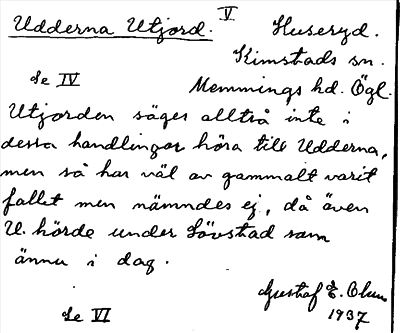 Udderna Utjord. V Huseryd.
Kimstads sn.
Se IV Memmings hd. Ögl.
Utjorden säges alltså inte i
dessa handlingar höra till Udderna,
men så har väl av gammalt varit
fallet men nämndes ej, då även
U. hörde under Lövstad som
ännu i dag.
Gustaf E. Olson
1937
Se VI